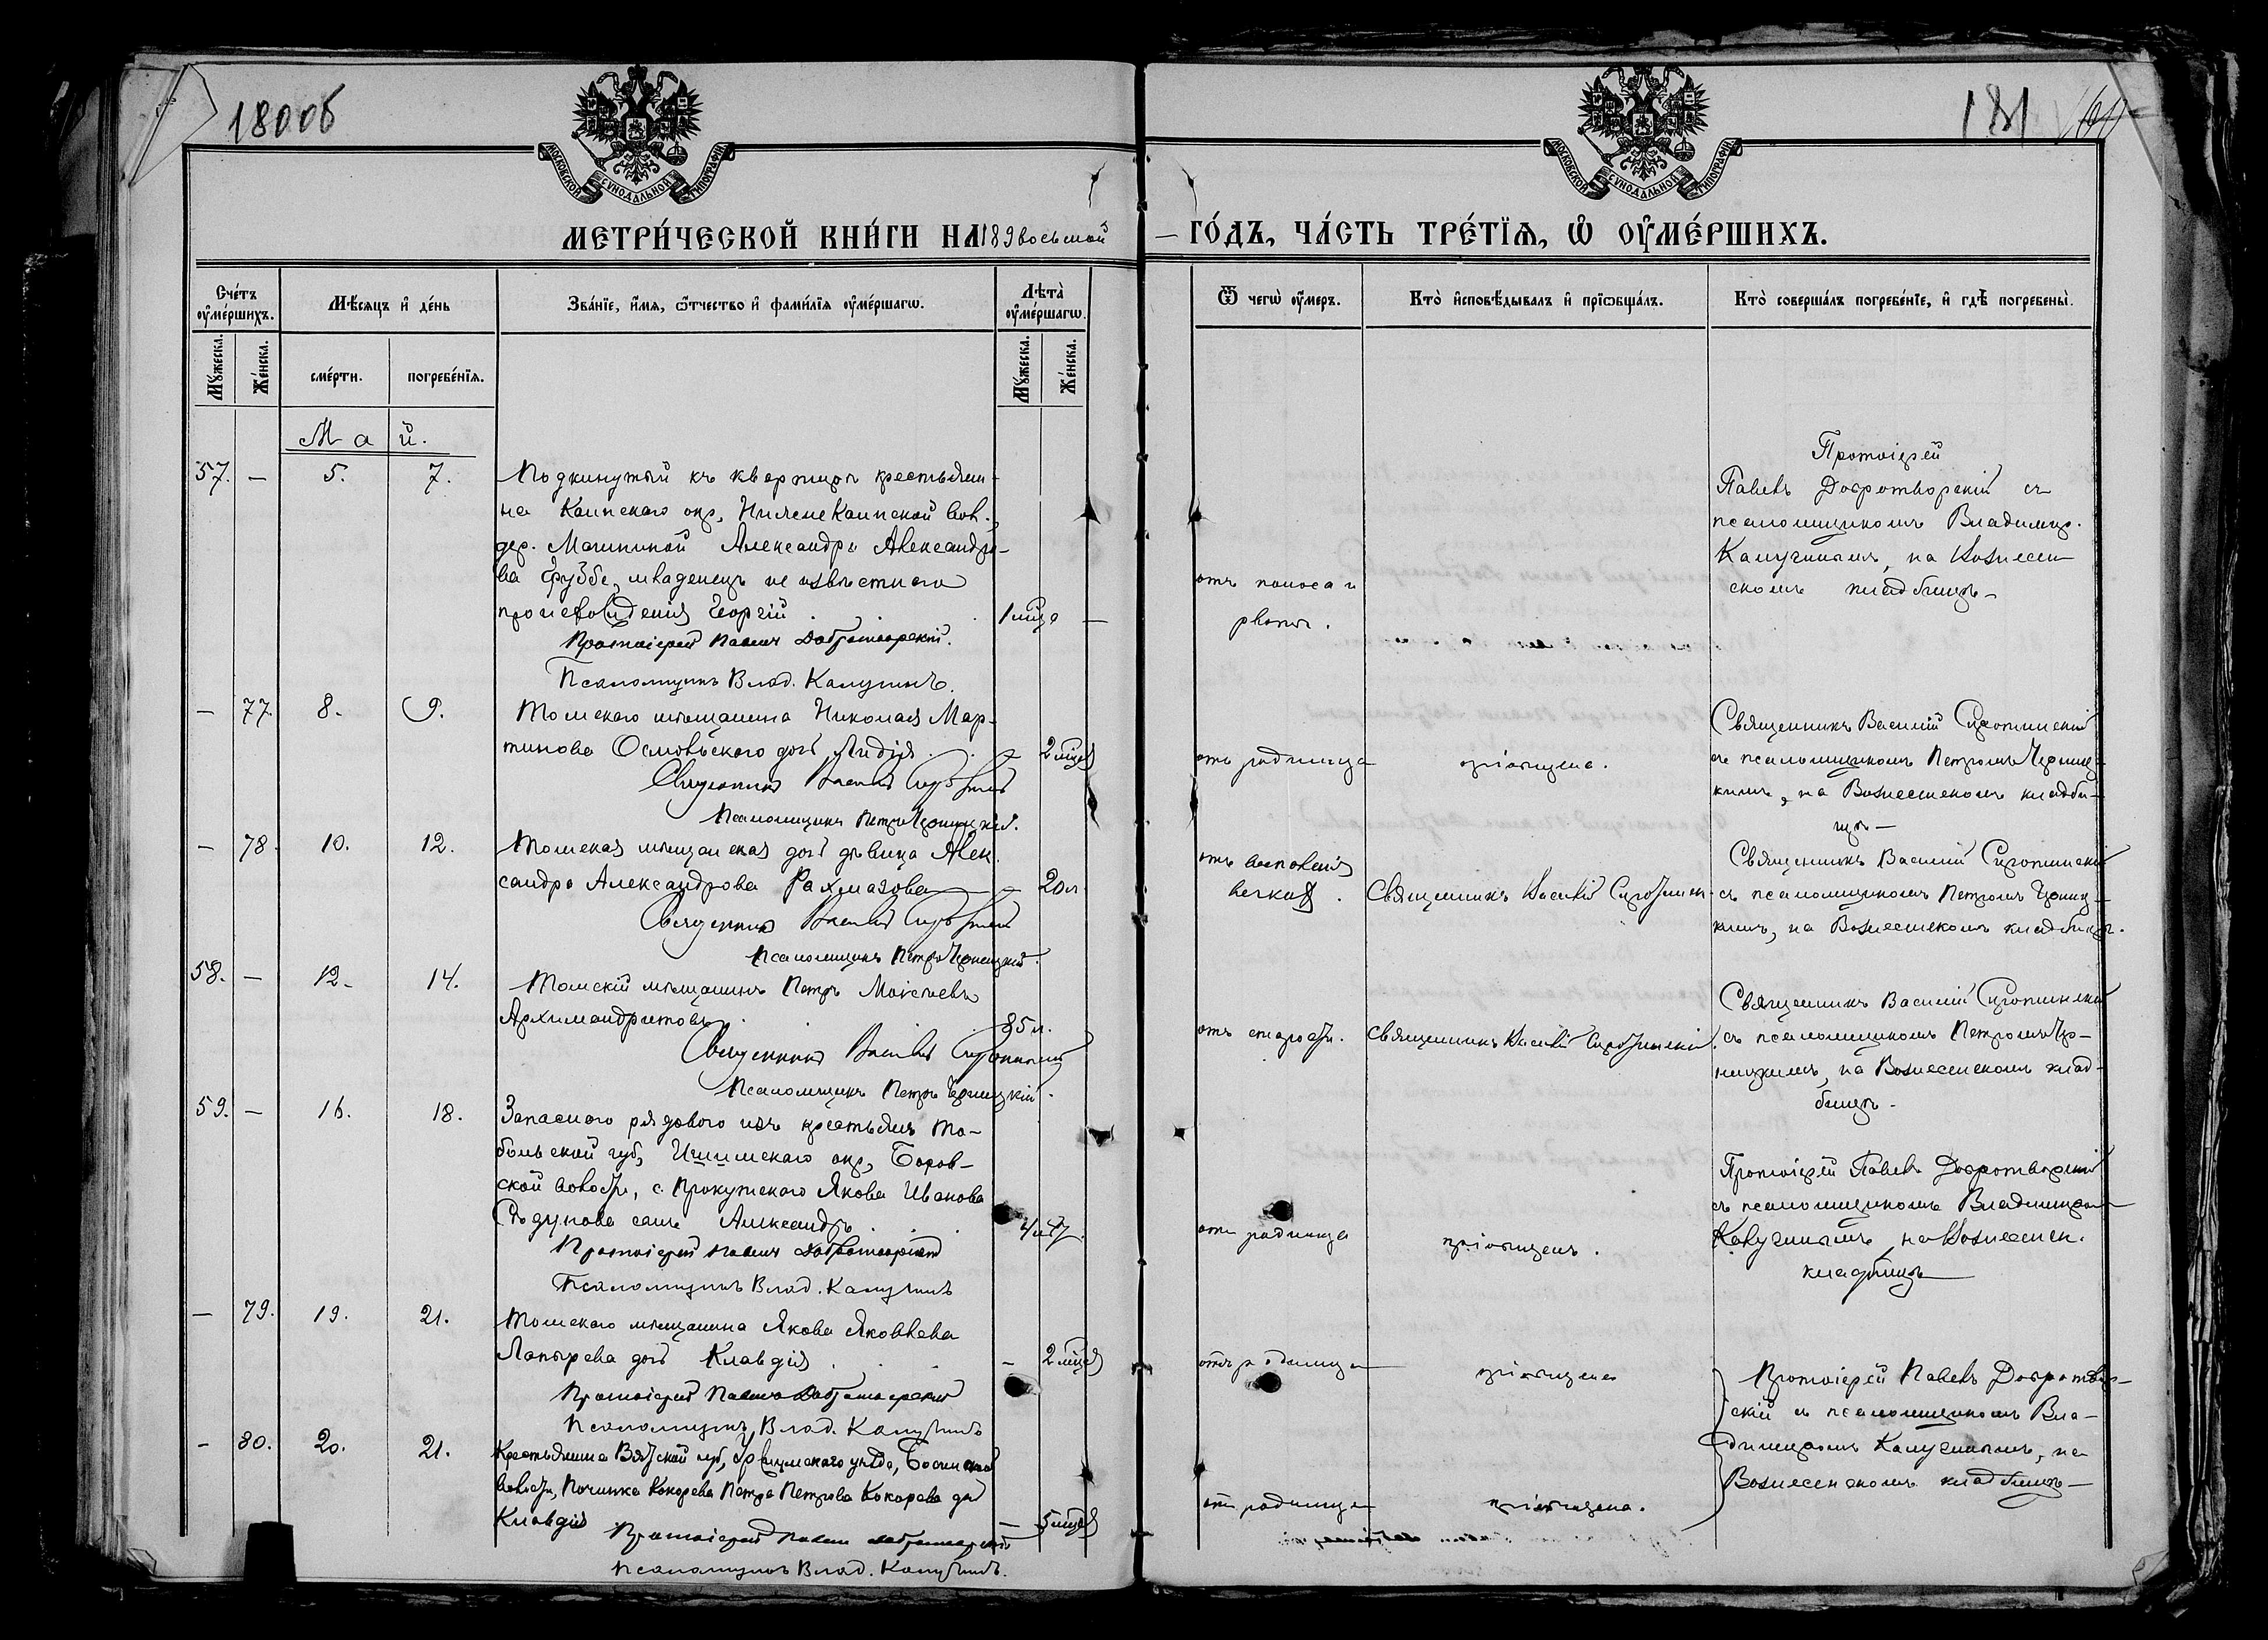 180об
181
МОСКОВСКОЙ СѴНОДАЛЬНОЙ ТИПОГРАФІИ
МОСКОВСКОЙ СѴНОДАЛЬНОЙ ТИПОГРАФІИ
МЕТРИ́ЧЕСКОЙ КНИ́ГИ НА 189восьмой
ГО́ДЪ, ЧА́СТЬ ТРЕ́ТЇѦ, Ѡ ОУМЕ́РШИХЪ.
Сче́тъ оуме́ршихъ.
Мѣ́сѧцъ и де́нь
Зва́нїе, и́мѧ, ѻ́тчество и фами́лїѧ оуме́ршагѡ.
Лѣта̀ оуме́ршагѡ.
Ѿ чегѡ̀ оу́меръ.
Кто̀ исповѣ́дывалъ и прїѡбща́лъ.
Кто̀ соверша́лъ погребе́нїе, и гдѣ̀ погребены̀.
Му́жеска.
Же́нска.
сме́рти.
погребе́нїѧ.
Му́жеска.
Же́нска.
Май.
57. — 5. 7. Подкинутый къ квартирѣ крестьяни-
на Каинскаго окр., НижнеКаинской вол.,
дер. Александра Александро-
ва младенецъ неизвѣстнаго
происхожденія Георгій 1 мца —
Протоіерей Павелъ Добротворскій.
Псаломщикъ Влад. Калугинъ.
отъ поноса и
рвоты.
Протоіерей
Павелъ Добротворскій съ
псаломщикомъ Владимір.
Калугинымъ, на Вознесен
скомъ кладбищѣ —
— 77. 8. 9. Томскаго мѣщанина Николая Мар-
тинова дочь Лидія — 2 мца
Священникъ Василій Сиротинскій
Псаломщикъ Петръ Черницкій.
отъ родимца
пріобщена.
Священникъ Василій Сиротинскій
съ псаломщикомъ Петромъ Черниц-
кимъ, на Вознесенскомъ кладби-
щѣ —
— 78. 10. 12. Томская мѣщанская дочь дѣвица Алек-
сандра Александрова Рахмазова — 20 л.
Священникъ Василій Сиротинскій
Псаломщикъ Петръ Черницкій.
отъ воспаленія
легкихъ.
Священникъ Василій Сиротинск.
Священникъ Василій Сиротинскій
съ псаломщикомъ Петромъ Черниц-
кимъ, на Вознесенскомъ кладбищѣ.
58. — 12. 14. Томскій мѣщанинъ Петръ Моисеевъ
Архимандритовъ. 85 л.
Священникъ Василій Сиротинскій
Псаломщикъ Петръ Черницкій.
отъ старости.
Священникъ Василій Сиротинскій.
Священникъ Василій Сиротинскій
съ псаломщикомъ Петромъ Чер-
ницкимъ, на Вознесенскомъ клад-
бищѣ.
59. — 16. 18. Запаснаго рядового изъ крестьянъ То-
больской губ., Ишимскаго окр., Боров-
ской волости, с. Прокутскаго Якова Иванова
сынъ Александръ
Протоіерей Павелъ Добротворскій
Псаломщикъ Влад. Калугинъ
отъ родимца
пріобщенъ.
Протоіерей Павелъ Добротворскій
съ псаломщикомъ Владиміромъ
Калугинымъ, на Вознесенск.
кладбищѣ
— 79. 19. 21. Томскаго мѣщанина Якова Яковлева
Лапырева дочь Клавдія — 2 мца
Протоіерей Павелъ Добротворскій
Псаломщикъ Влад. Калугинъ
отъ родимца
пріобщена
Протоіерей Павелъ Добротвор-
скій съ псаломщикомъ Вла-
диміромъ Калугинымъ, на
Вознесенскомъ кладбищѣ —
— 80. 20. 21. Крестьянина Вятской губ., уѣзда,
волости, Починка Кокорева Петра Петрова Кокорева дочь
Клавдія — 5 мцев
Протоіерей Павелъ Добротворскій
Псаломщикъ Влад. Калугинъ.
отъ родимца
пріобщена.